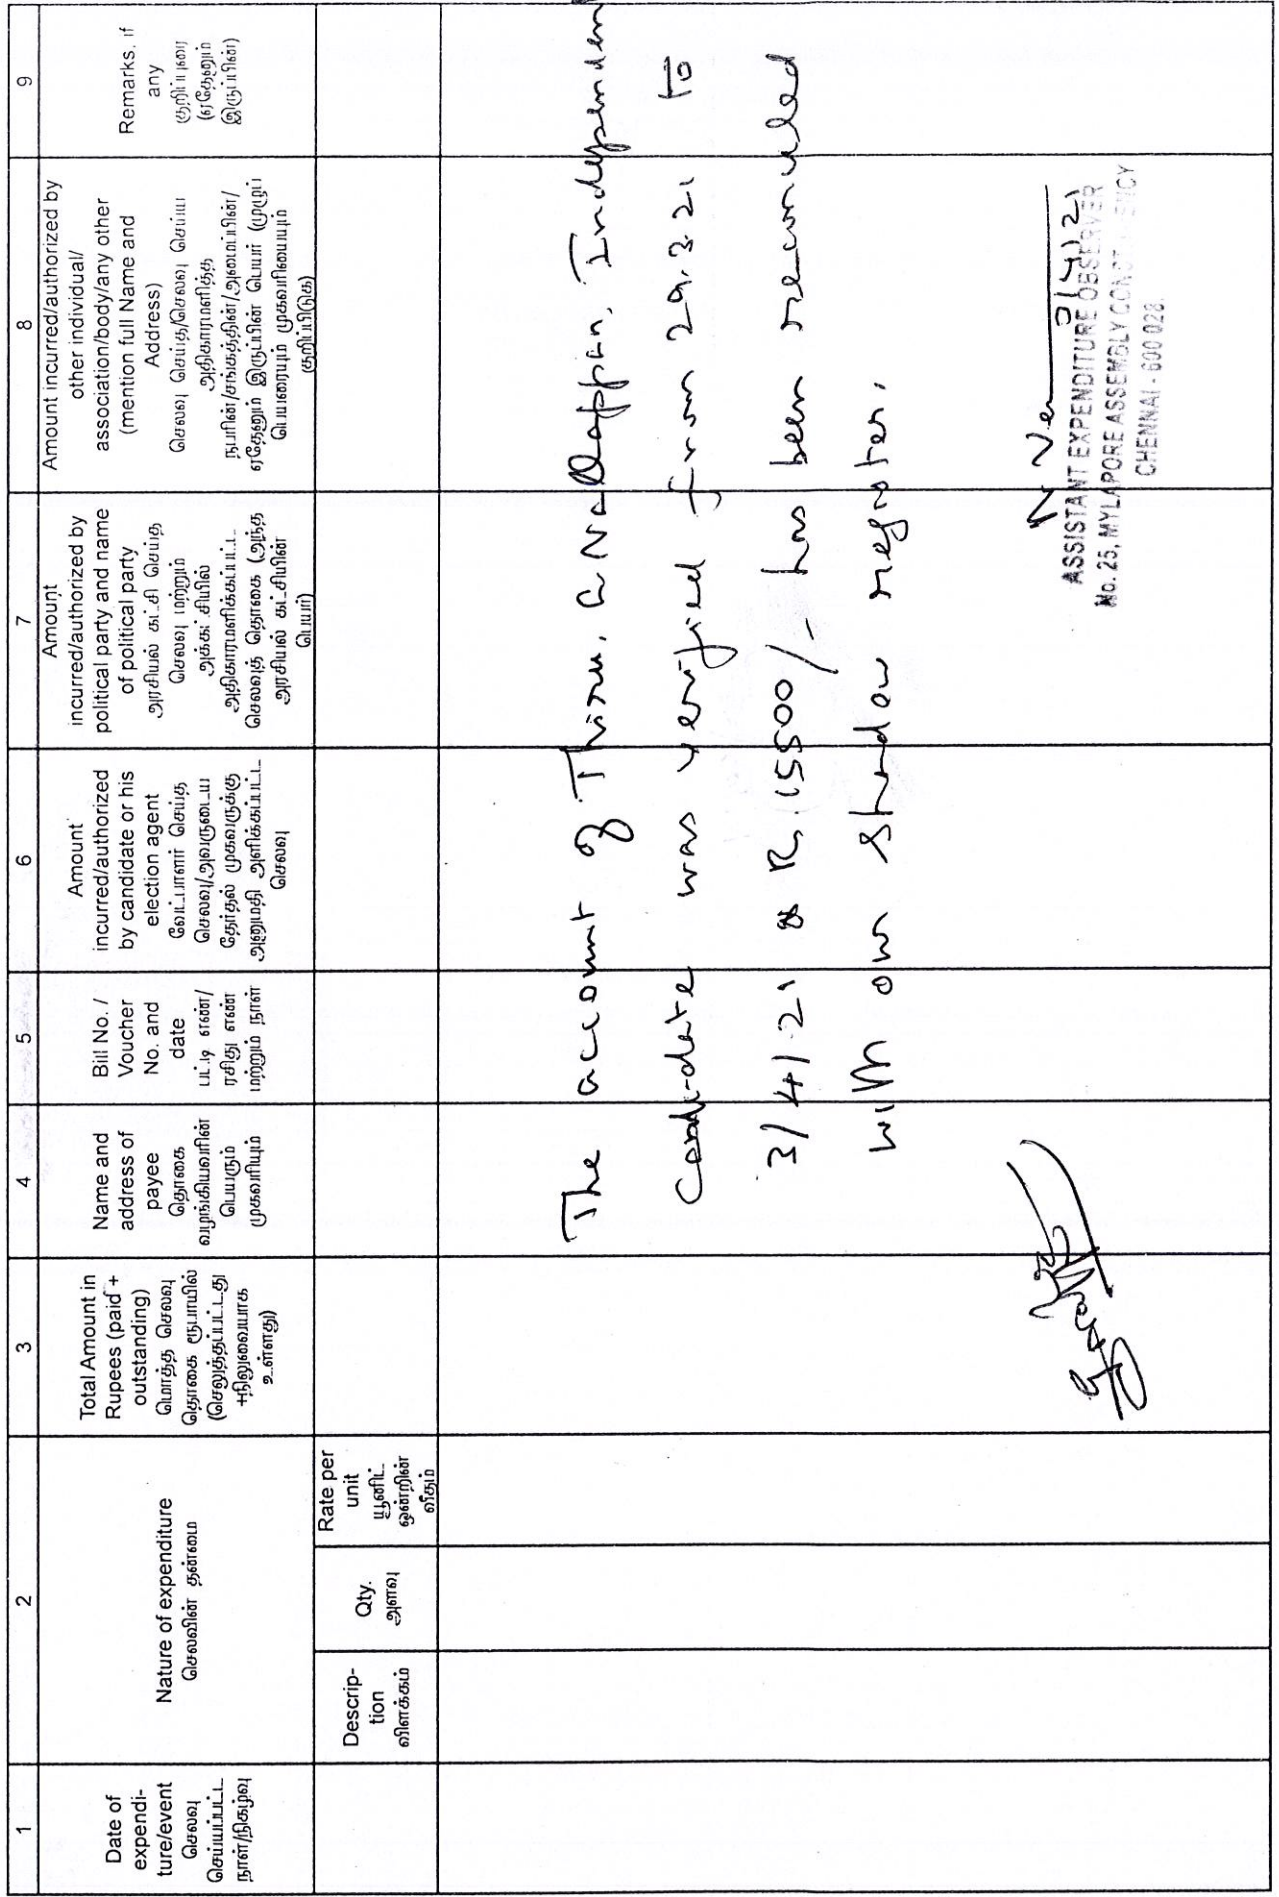 1
2
3
4
5
6
7
8
9
Date of
expendi-
ture/event
செலவு
செய்யப்பட்ட
நாள்/நிகழ்வு
Nature of expenditure
செலவின் தன்மை
Descrip-
tion
விளக்கம்
Qty.
அளவு
Rate per
unit
யூனிட்
ஒன்றின்
வீதம்
Total Amount in
Rupees (paid +
outstanding)
மொத்த செலவு
தொகை ரூபாயில்
(செலுத்தப்பட்டது
+நிலுவையாக
உள்ளது)
Name and
address of
payee
தொகை
வழங்கியவரின்
பெயரும்
முகவரியும்
Bill No. /
Voucher
No. and
date
பட்டி எண்/
ரசிது எண்
மற்றும் நாள்
Amount
incurred/authorized
by candidate or his
election agent
வேட்பாளர் செய்த
செலவு/அவருடைய
தேர்தல் முகவருக்கு
அனுமதி அளிக்கப்பட்ட
செலவு
Amount
incurred/authorized by
political party and name
of political party
அரசியல் கட்சி செய்த
செலவு மற்றும்
அக்கட்சியில்
அதிகாரமளிக்கப்பட்ட
செலவுத் தொகை (அந்த
அரசியல் கட்சியின்
பெயர்)
Amount incurred/authorized by
other individual/
association/body/any other
(mention full Name and
Address)
செலவு செய்த/செலவு செய்ய
அதிகாரமளித்த
நபரின்/சங்கத்தின்/அமைப்பின்/
ஏதேனும் இருப்பின் பெயர் (முழுப்
பெயரையும் முகவரியையும்
குறிப்பிடுக)
Remarks, if
any
குறிப்புரை
(ஏதேனும்
இருப்பின்)
The account of Thiru. G Nallappan, Independent
Candidate was verified from 29.3.21 to
3/4/21 & Rs. 15500/- has been reconciled
with our shadow register.
ASSISTANT EXPENDITURE OBSERVER
No. 25, MYLAPORE ASSEMBLY CONSTITUENCY
CHENNAI - 600 028.